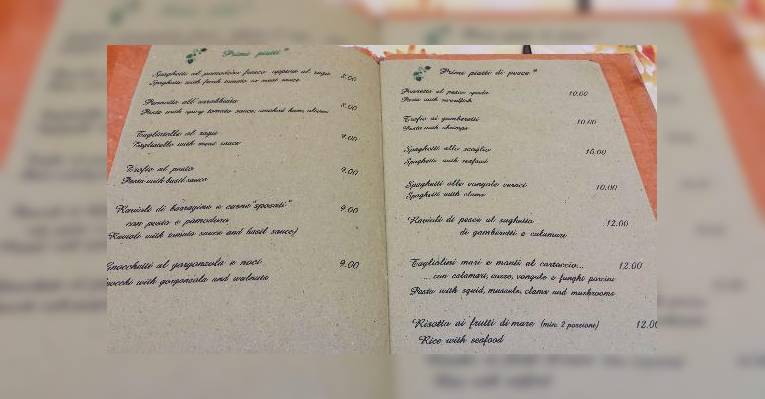 Primi piatti*
Spaghetti al pomodoro fresco oppure al ragù 8.00
Spaghetti with fresh tomato or meat sauce
Pennette all'arrabbiata 8.00
Pasta with spicy tomato sauce, smoked ham, olives
Tagliatelle al ragù 9.00
Tagliatelle with meat sauce
Trofie al pesto 9.00
Pasta with basil sauce
Ravioli di borragine e carne "sposati" 9.00
con pesto e pomodoro
Ravioli with tomato sauce and basil sauce)
Gnocchetti al gorgonzola e noci 9.00
gnocchi with gorgonzola and walnuts
Primi piatti di pesce*
Pennette al pesce spada 10.00
Pasta with swordfish
Trofie ai gamberetti 10.00
Pasta with shrimps
Spaghetti allo scoglio 10.00
Spaghetti with seafood
Spaghetti alle vongole veraci 10.00
Spaghetti with clams
Ravioli di pesce al sughetto 12.00
di gamberetti e calamari
Tagliolini mari e monti al cartoccio... 12.00
...con calamari, cozze, vongole e funghi porcini
Pasta with squid, mussels, clams and mushrooms
Risotto ai frutti di mare (min. 2 porzioni) 12.00
Rice with seafood